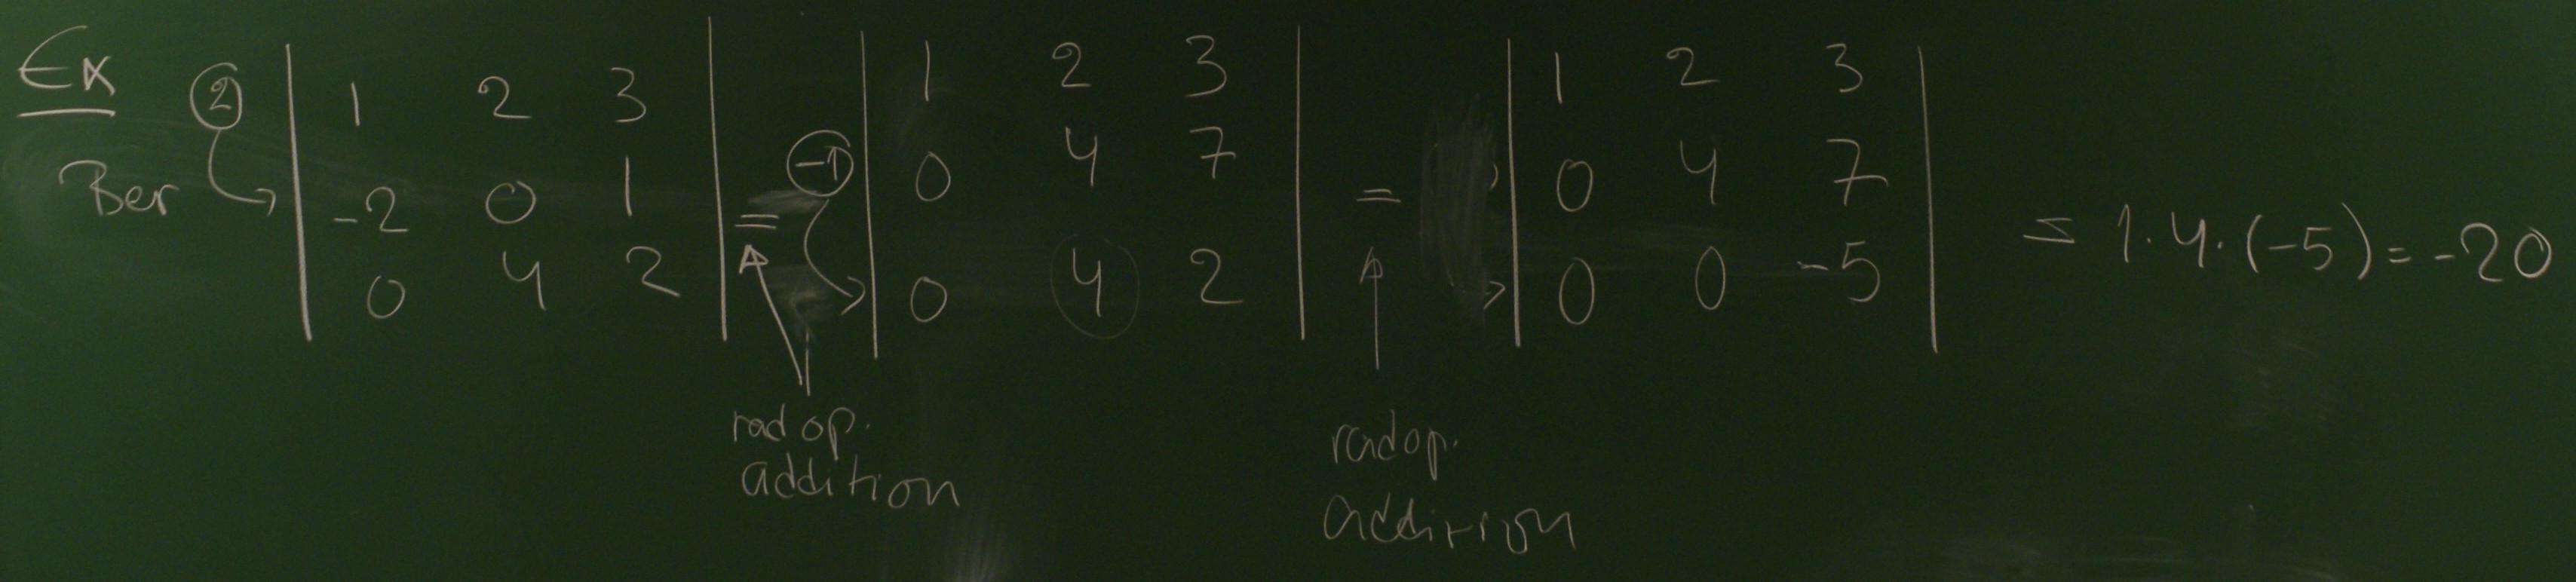 Ex
Ber
② | 1 2 3 |
| -2 0 1 |
| 0 4 2 |
=
(-1) | 1 2 3 |
| 0 4 7 |
| 0 4 2 |
=
| 1 2 3 |
| 0 4 7 |
| 0 0 -5 |
= 1·4·(-5) = -20
radop.
addition
radop.
addition